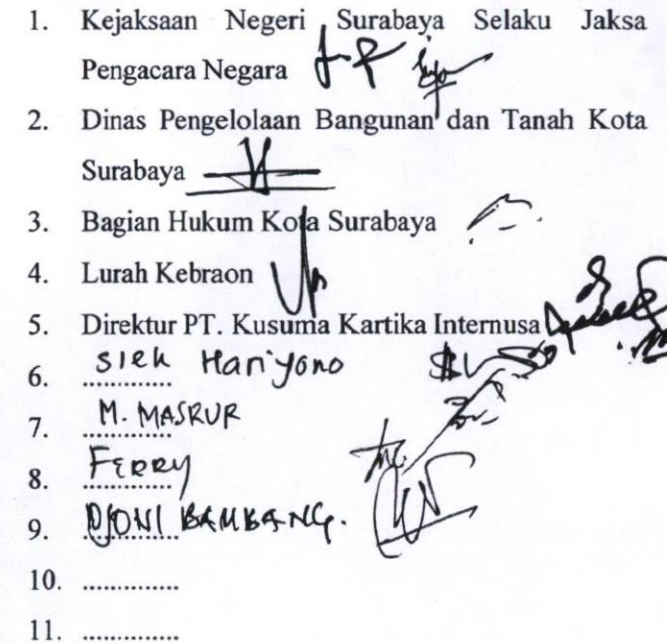 1. Kejaksaan Negeri Surabaya Selaku Jaksa
Pengacara Negara
2. Dinas Pengelolaan Bangunan dan Tanah Kota
Surabaya
3. Bagian Hukum Kota Surabaya
4. Lurah Kebraon
5. Direktur PT. Kusuma Kartika Internusa
6. Siek Hariyono
7. M. MASRUR
8. FERRY
9. DJONI BAMBANG.
10. ...............
11. ...............